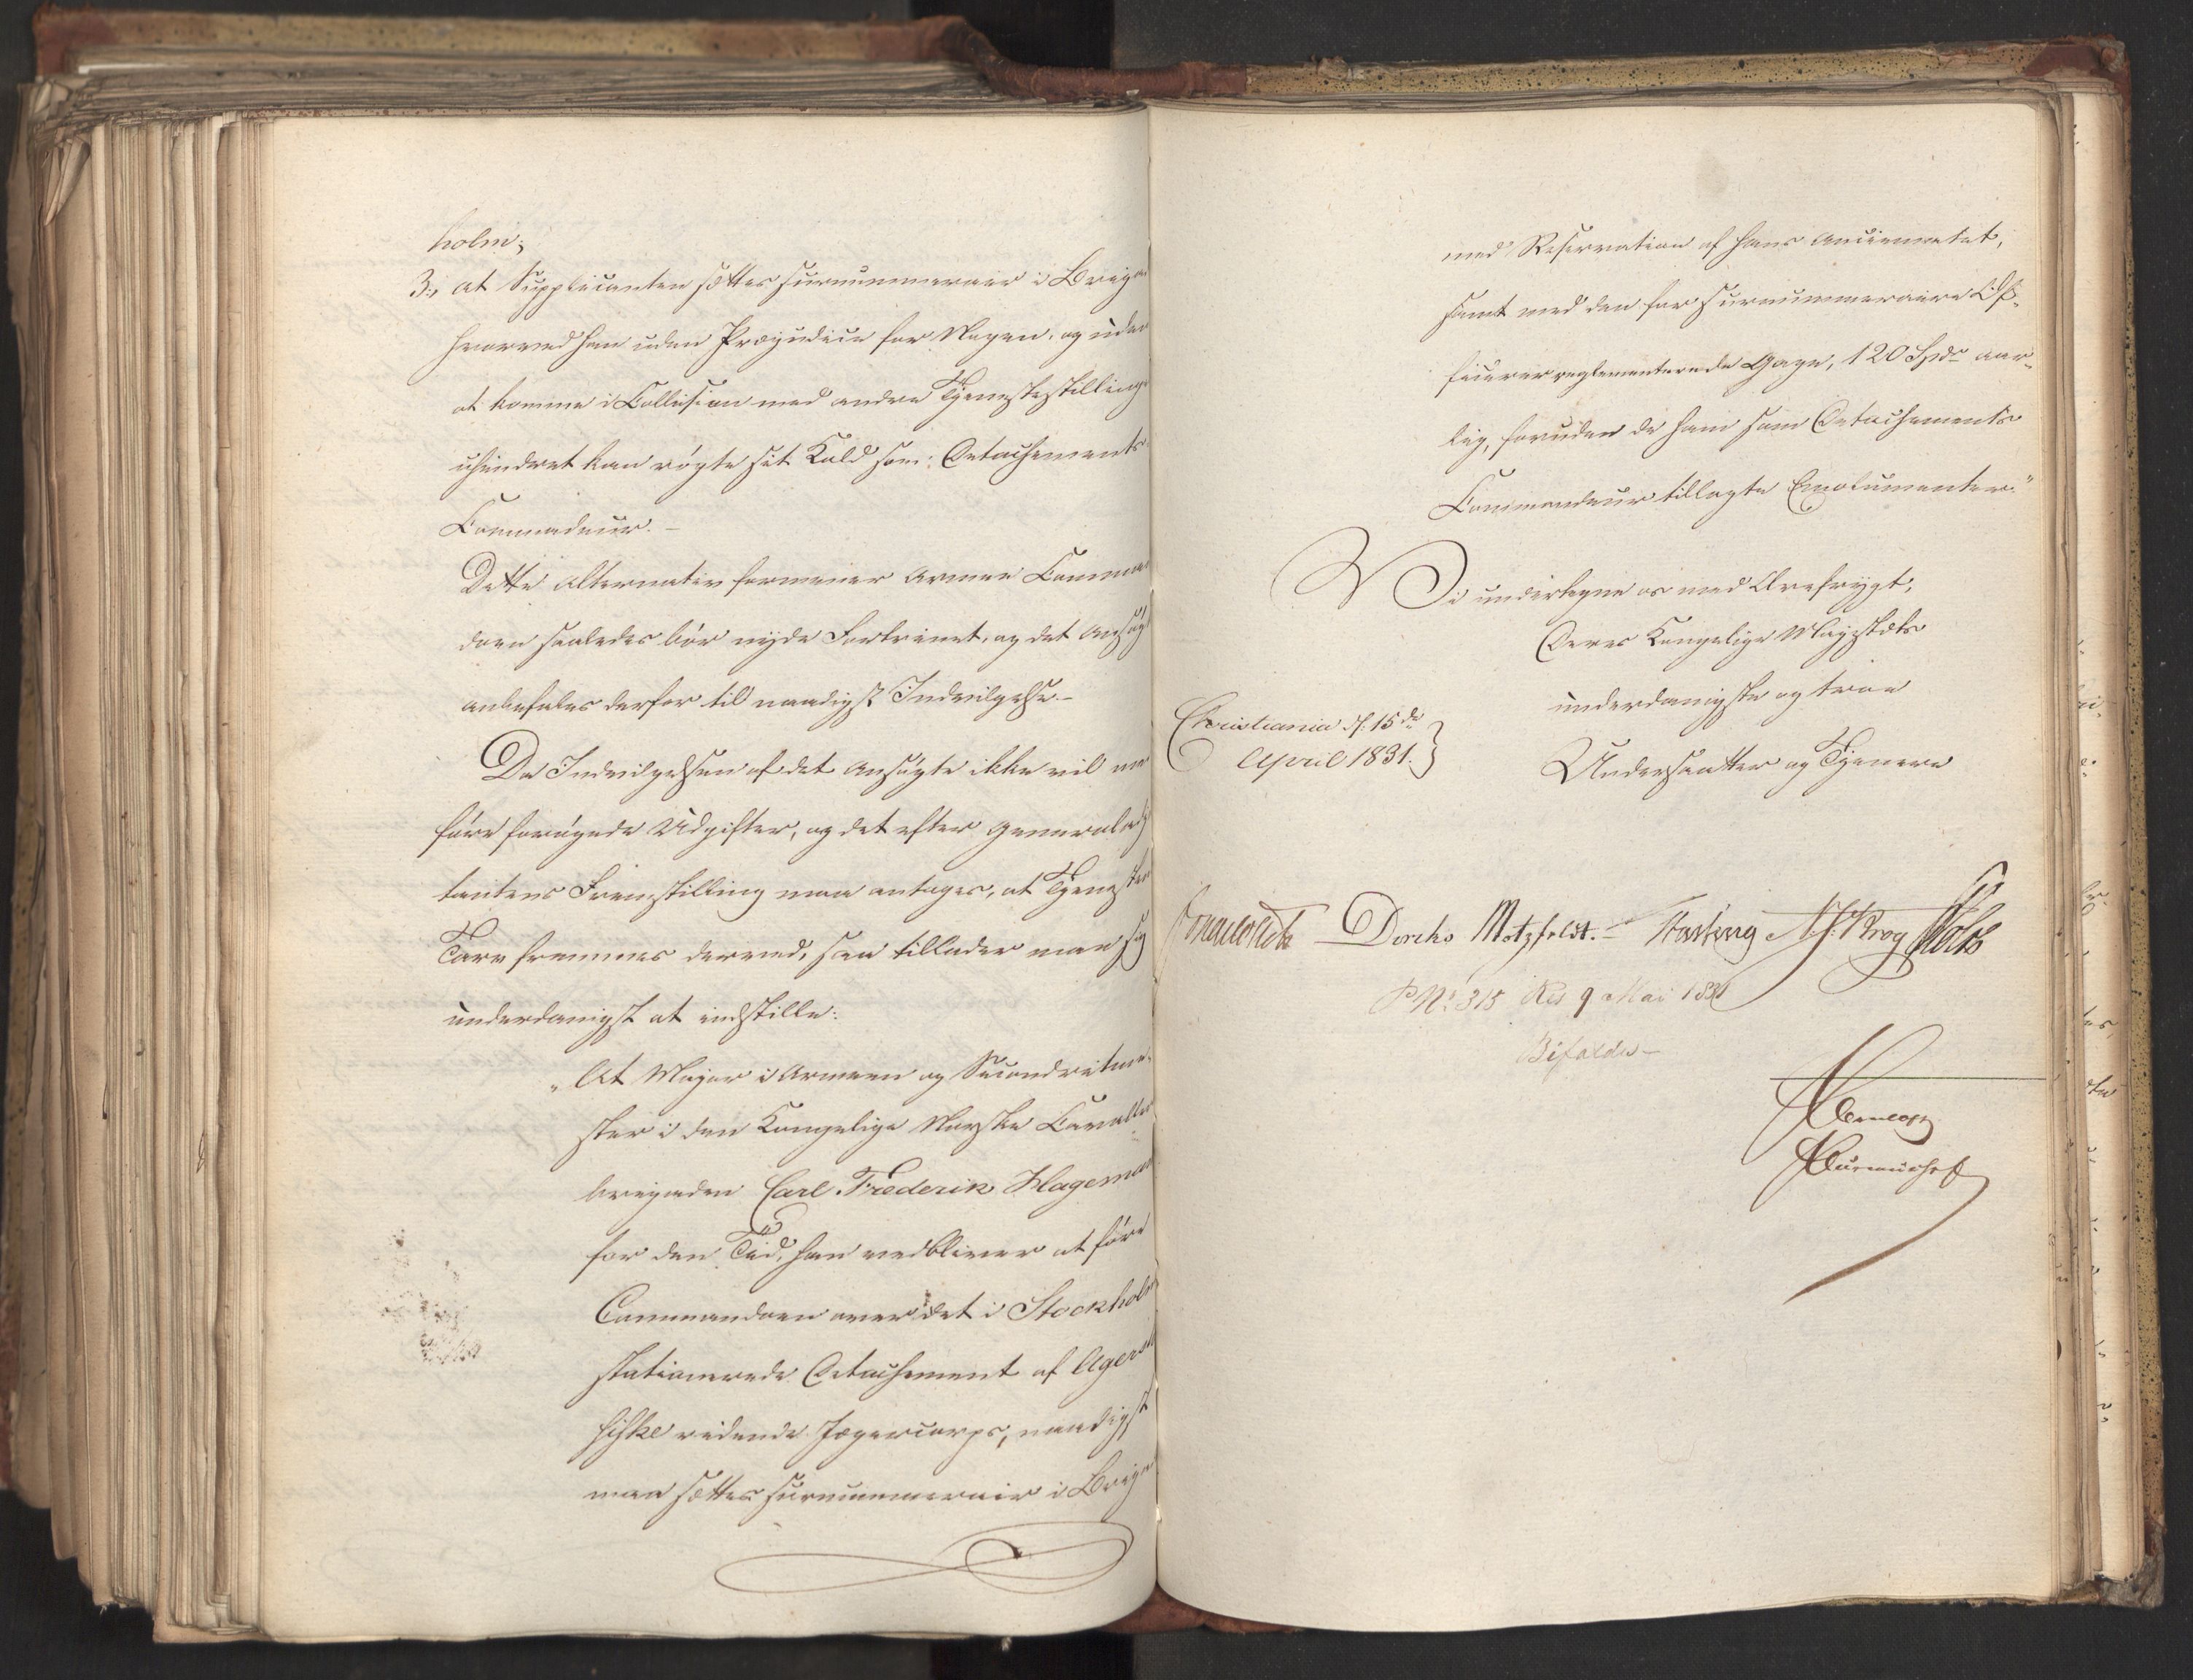 holm;
3., at Supplicanten sættes surnummerair i Briga
hvorved han uden Præjudice for Nogen, og uden
at komme i Collision med andre Tjenestestilling
uhindret kan røgte sit Kald som Detachements
Commadeur. –
Dette Alternativ formener Armee Comman
doen saaledes bør nyde Fortrinet, og det Ansøgt
anbefales derfor til naadigst Indvilgelse. –
Da Indvilgelsen af det Ansøgte ikke vil med
føre forøgede Udgifter, og det efter Generaladj
tantens Fremstilling maa antages, at Tjenesten
Tarv fremmes derved, saa tillader man sig
underdanigst at indstille:
„At Major i Armeen og Secondritme-
ster i den Kongelige Norske Cavalle
brigaden Carl Frederik Hageman
for den Tid, han vedbliver at føre
Commandoen over det i Stockholm
stationerede Detachement af Agers
husske ridende Jægercorps, naadigst
maa sættes surnummerair i Briga
med Reservation af hans Anciennetet,
samt med den for surnummeraire Of-
ficierer reglementerede Gage, 120 Spd aar-
lig, foruden de ham som Detachements
Commandeur tillagte Emolumenter."
Vi undertegne os med Ærefrygt,
Deres Kongelige Majestæts
underdanigste og troe
Undersaatter og Tjenere
Christiania d. 15de
April 1831.
Diriks Motzfeldt. Fasting Krog Holst
P No 315 Res 9 Mai 1831
Bifaldes –